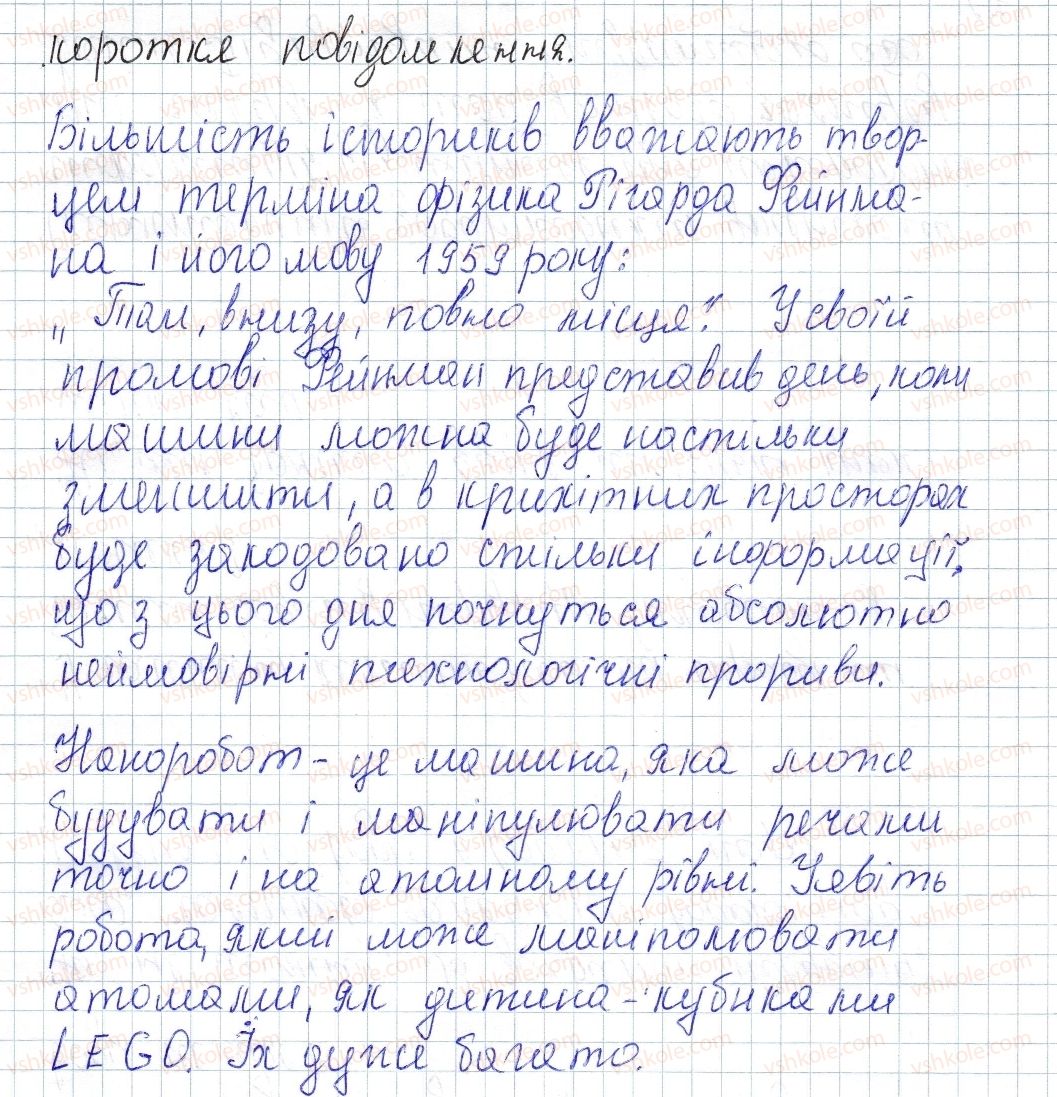 коротке повідомлення.
Більшість істориків вважають твор-
цем терміна фізика Річарда Фейнма-
на і його мову 1959 року:
„Там, внизу, повно місця". У своїй
промові Фейнман представив день, коли
машини можна буде настільки
зменшити, а в крихітних просторах
буде закодовано стільки інформації,
що з цього дня почнуться абсолютно
неймовірні технологічні прориви.
Наноробот - це машина, яка може
будувати і маніпулювати речами
точно і на атомному рівні. Уявіть
робота, який може маніполювати
атомами, як дитина - кубиками
LEGO. Їх дуже багато.